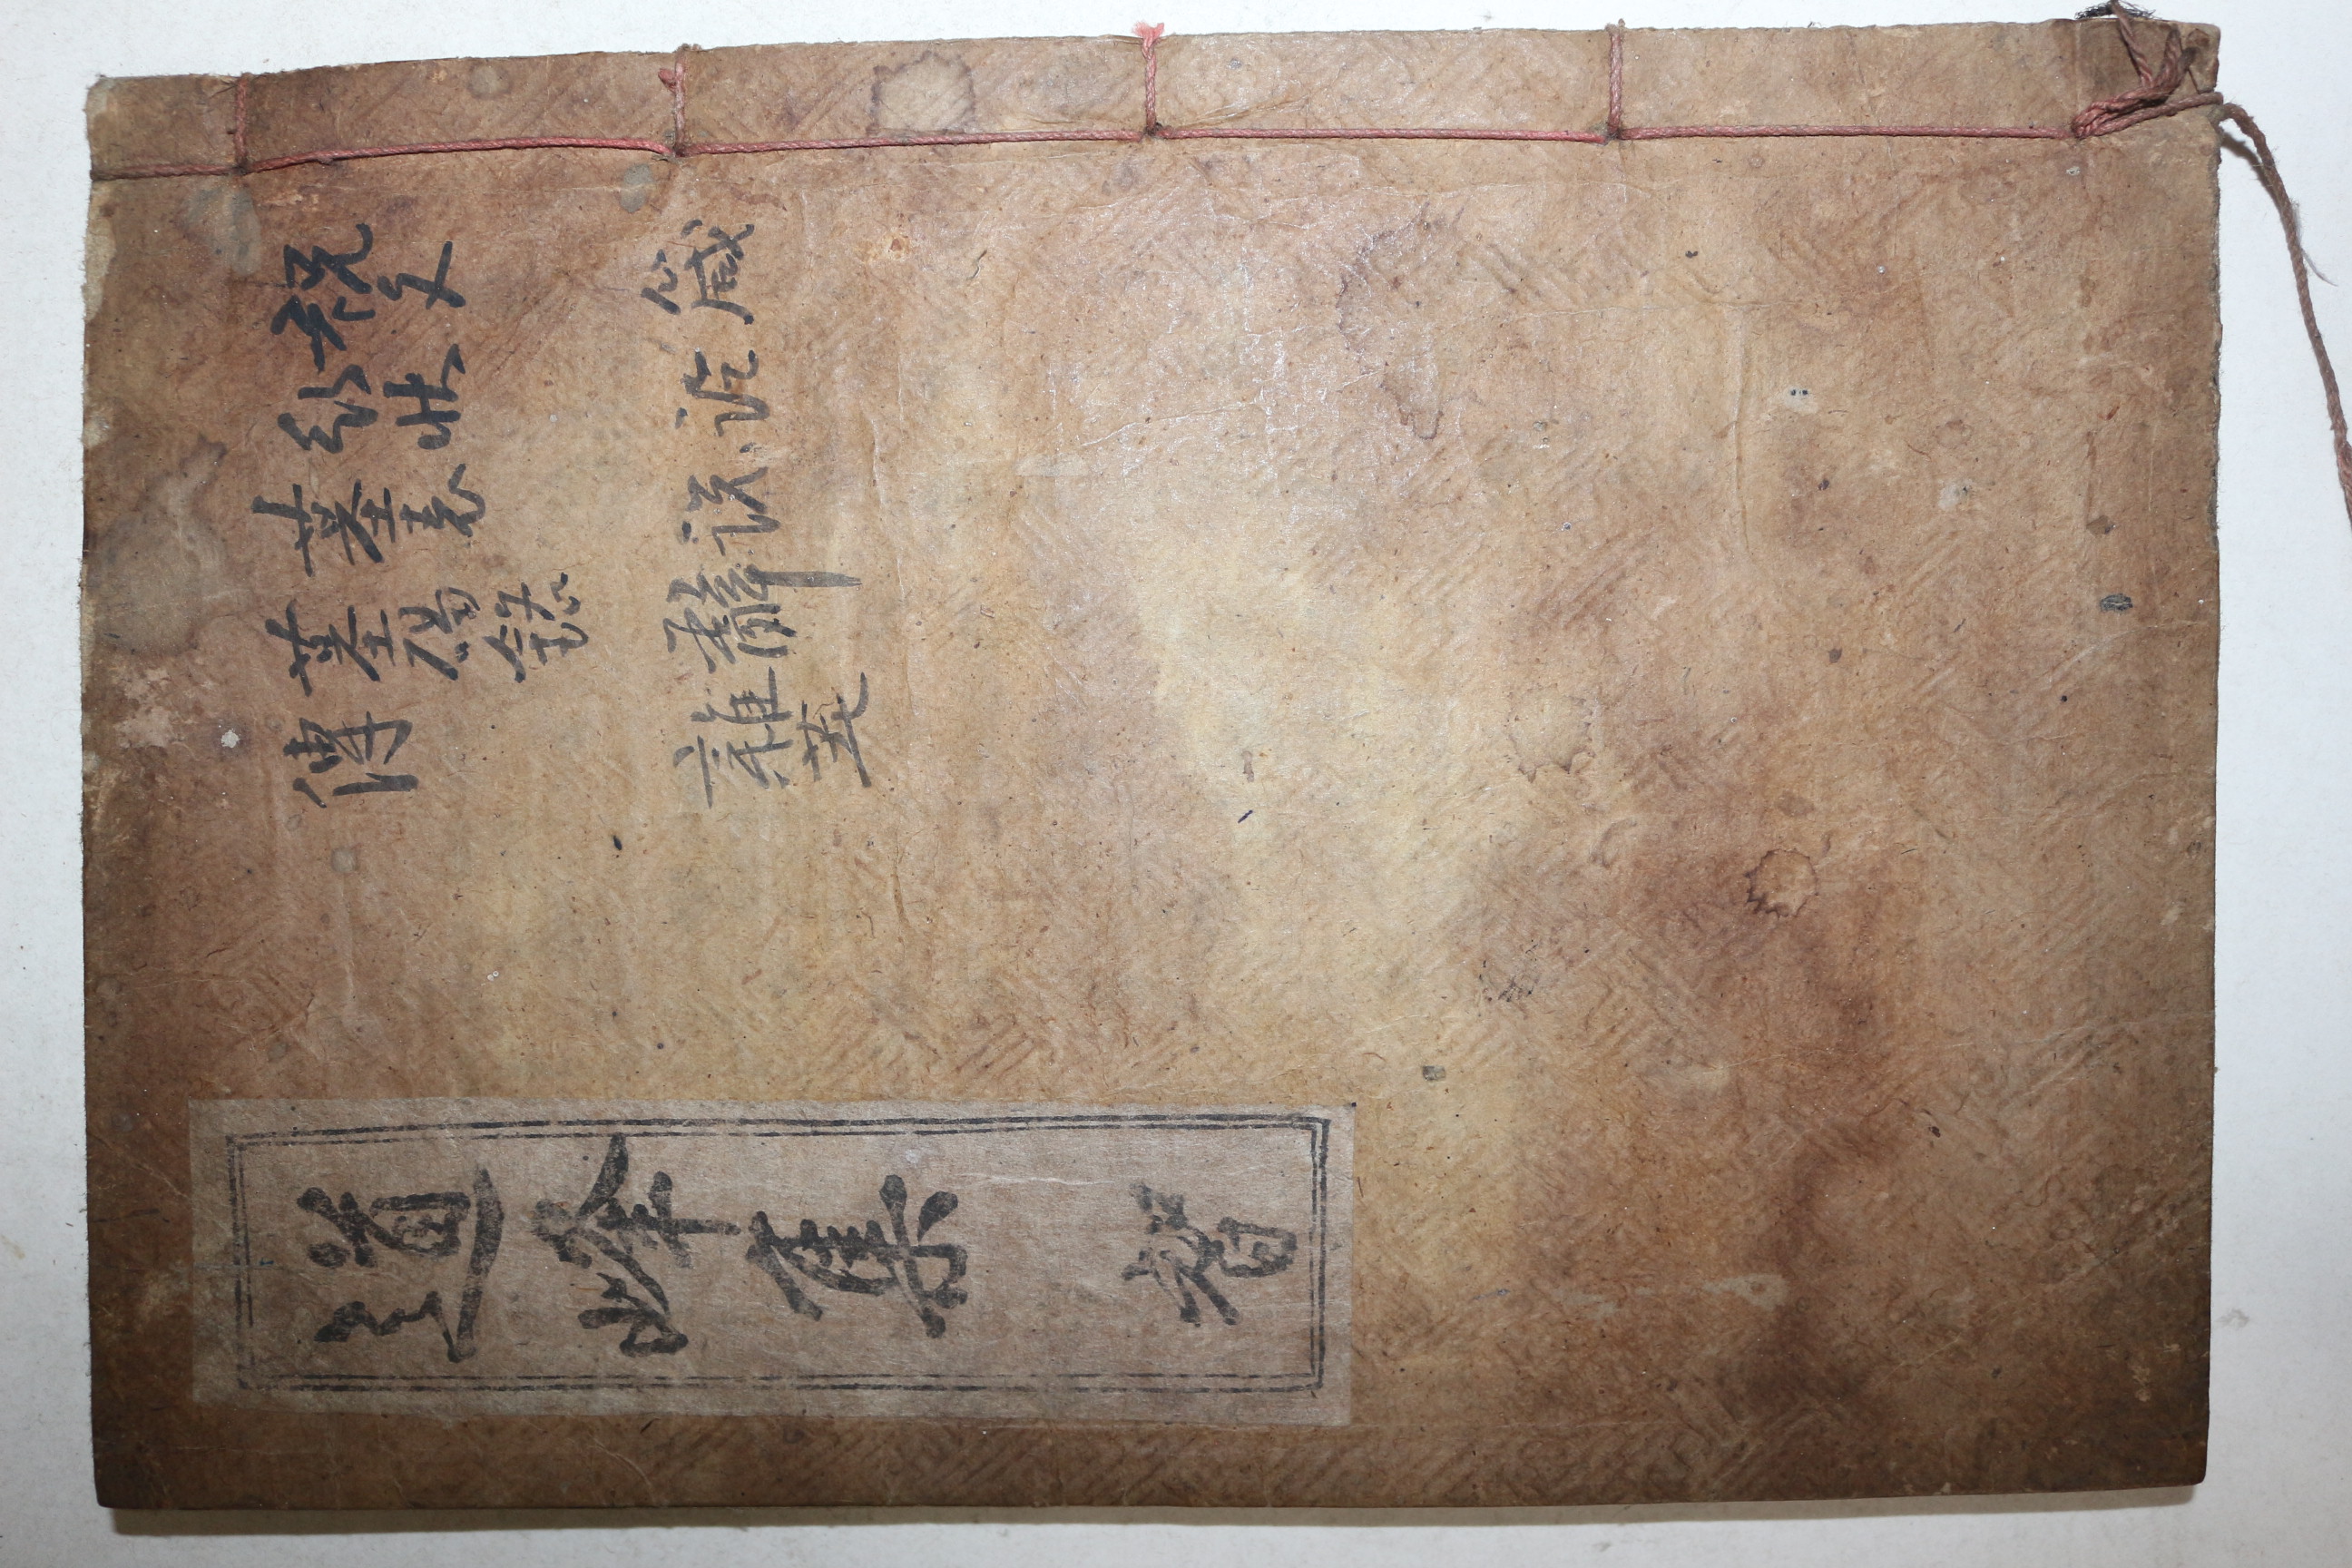 祝文
行狀
墓表
墓碣銘
傳
箴
論
說
辭
雜著
道峰集 智